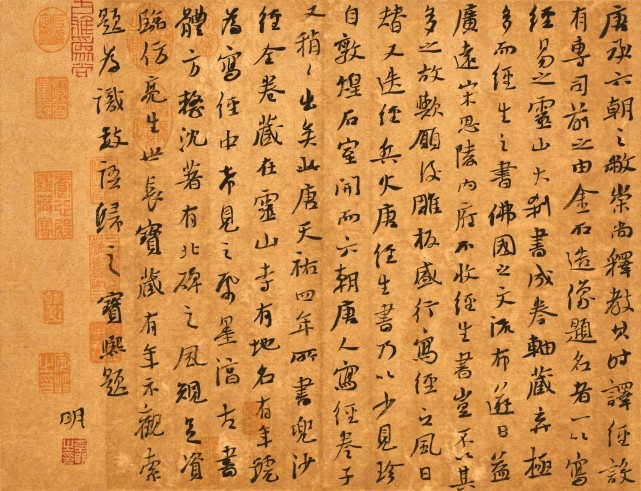 唐承六朝之敝崇尚釋教其時譯經設
有專司前之由金石造像題名者一以寫
經易之靈山大刹書成卷軸藏弆極
多而經生之書佛國之文流布遂日益
廣遠宋思陵內府不收經生書豈不以其
多之故歟厥後雕板盛行寫經之風日
替又迭經兵火唐經生書乃以少見珍
自敦煌石室開而六朝唐人寫經卷子
又稍〻出矣此唐天祐四年所書兜沙
經全卷藏在靈山寺有地名有年號
為寫經中希見之墨渾古書
體方整沈著有北碑之風規足資
臨仿亮生世長寶藏有年示觀索
題為識數語歸之寶熙題
明